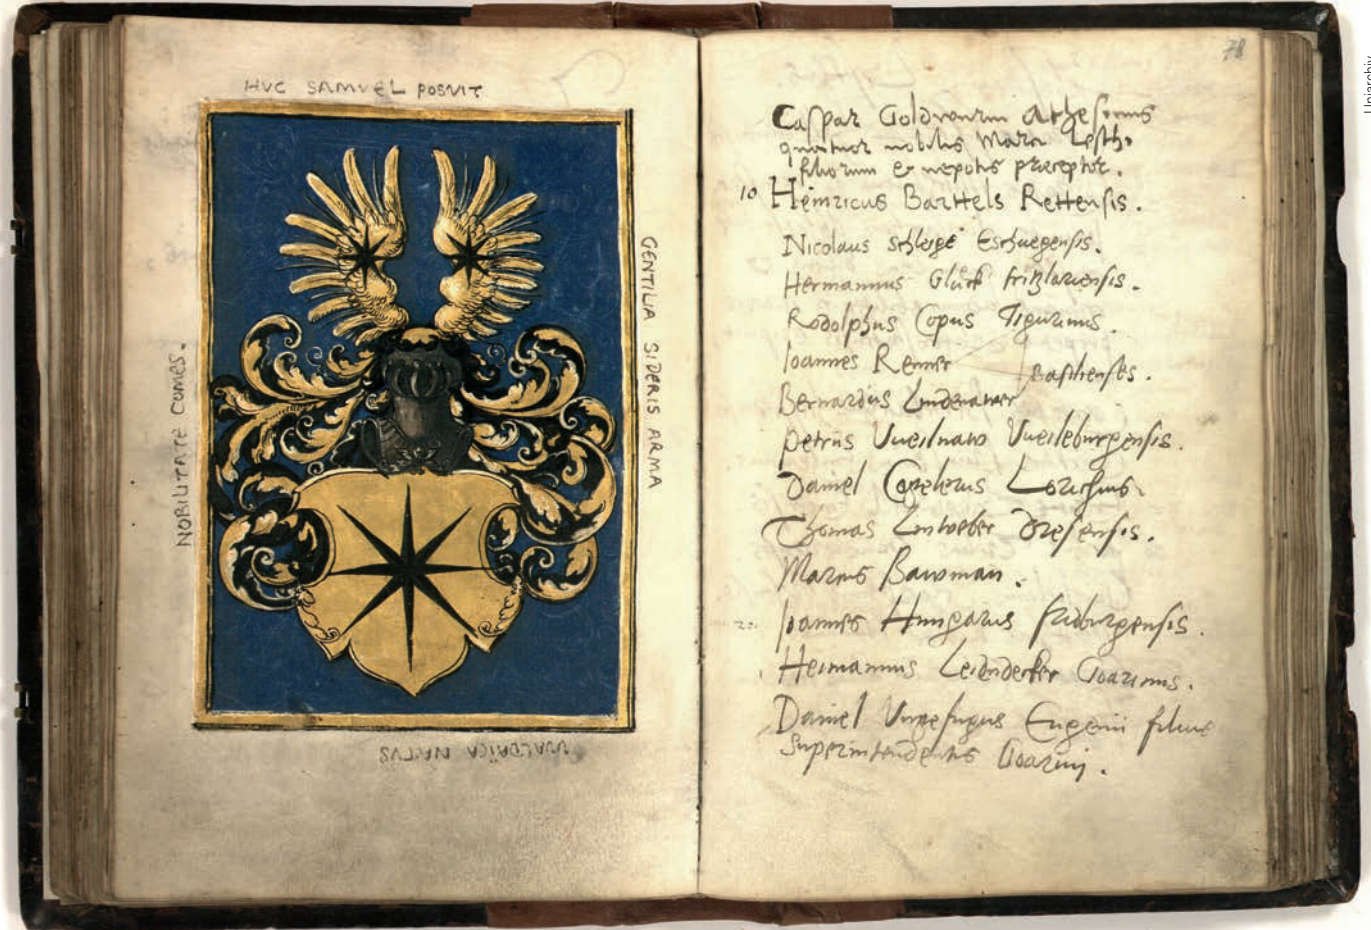 HVC SAMVEL POSVIT
GENTILIA SIDERIS ARMA
WALDRICA NATVS
NOBILITATE COMES.
78
Caspar Goldwurm Athesinus
quatuor nobilis Marci
filiorum et nepotis preceptor.
10 Heinricus Barttels Rettensis.
Nicolaus Schleige Eschuegensis.
Hermannus Glück fritzlariensis.
Rodolphus Copus Tigurinus.
Joannes Renner
Basilienses.
Bernardus Lindenawer
Petrus Vueilnaw Vueileburgensis.
Daniel Lorichius.
Thomas
Marcus Bawman.
20. Joannes Hungarus fridburgensis.
Hermannus Leiendecker Goarinus.
Daniel Eugenii filius
Superintendentis Goarini.
Uniarchiv